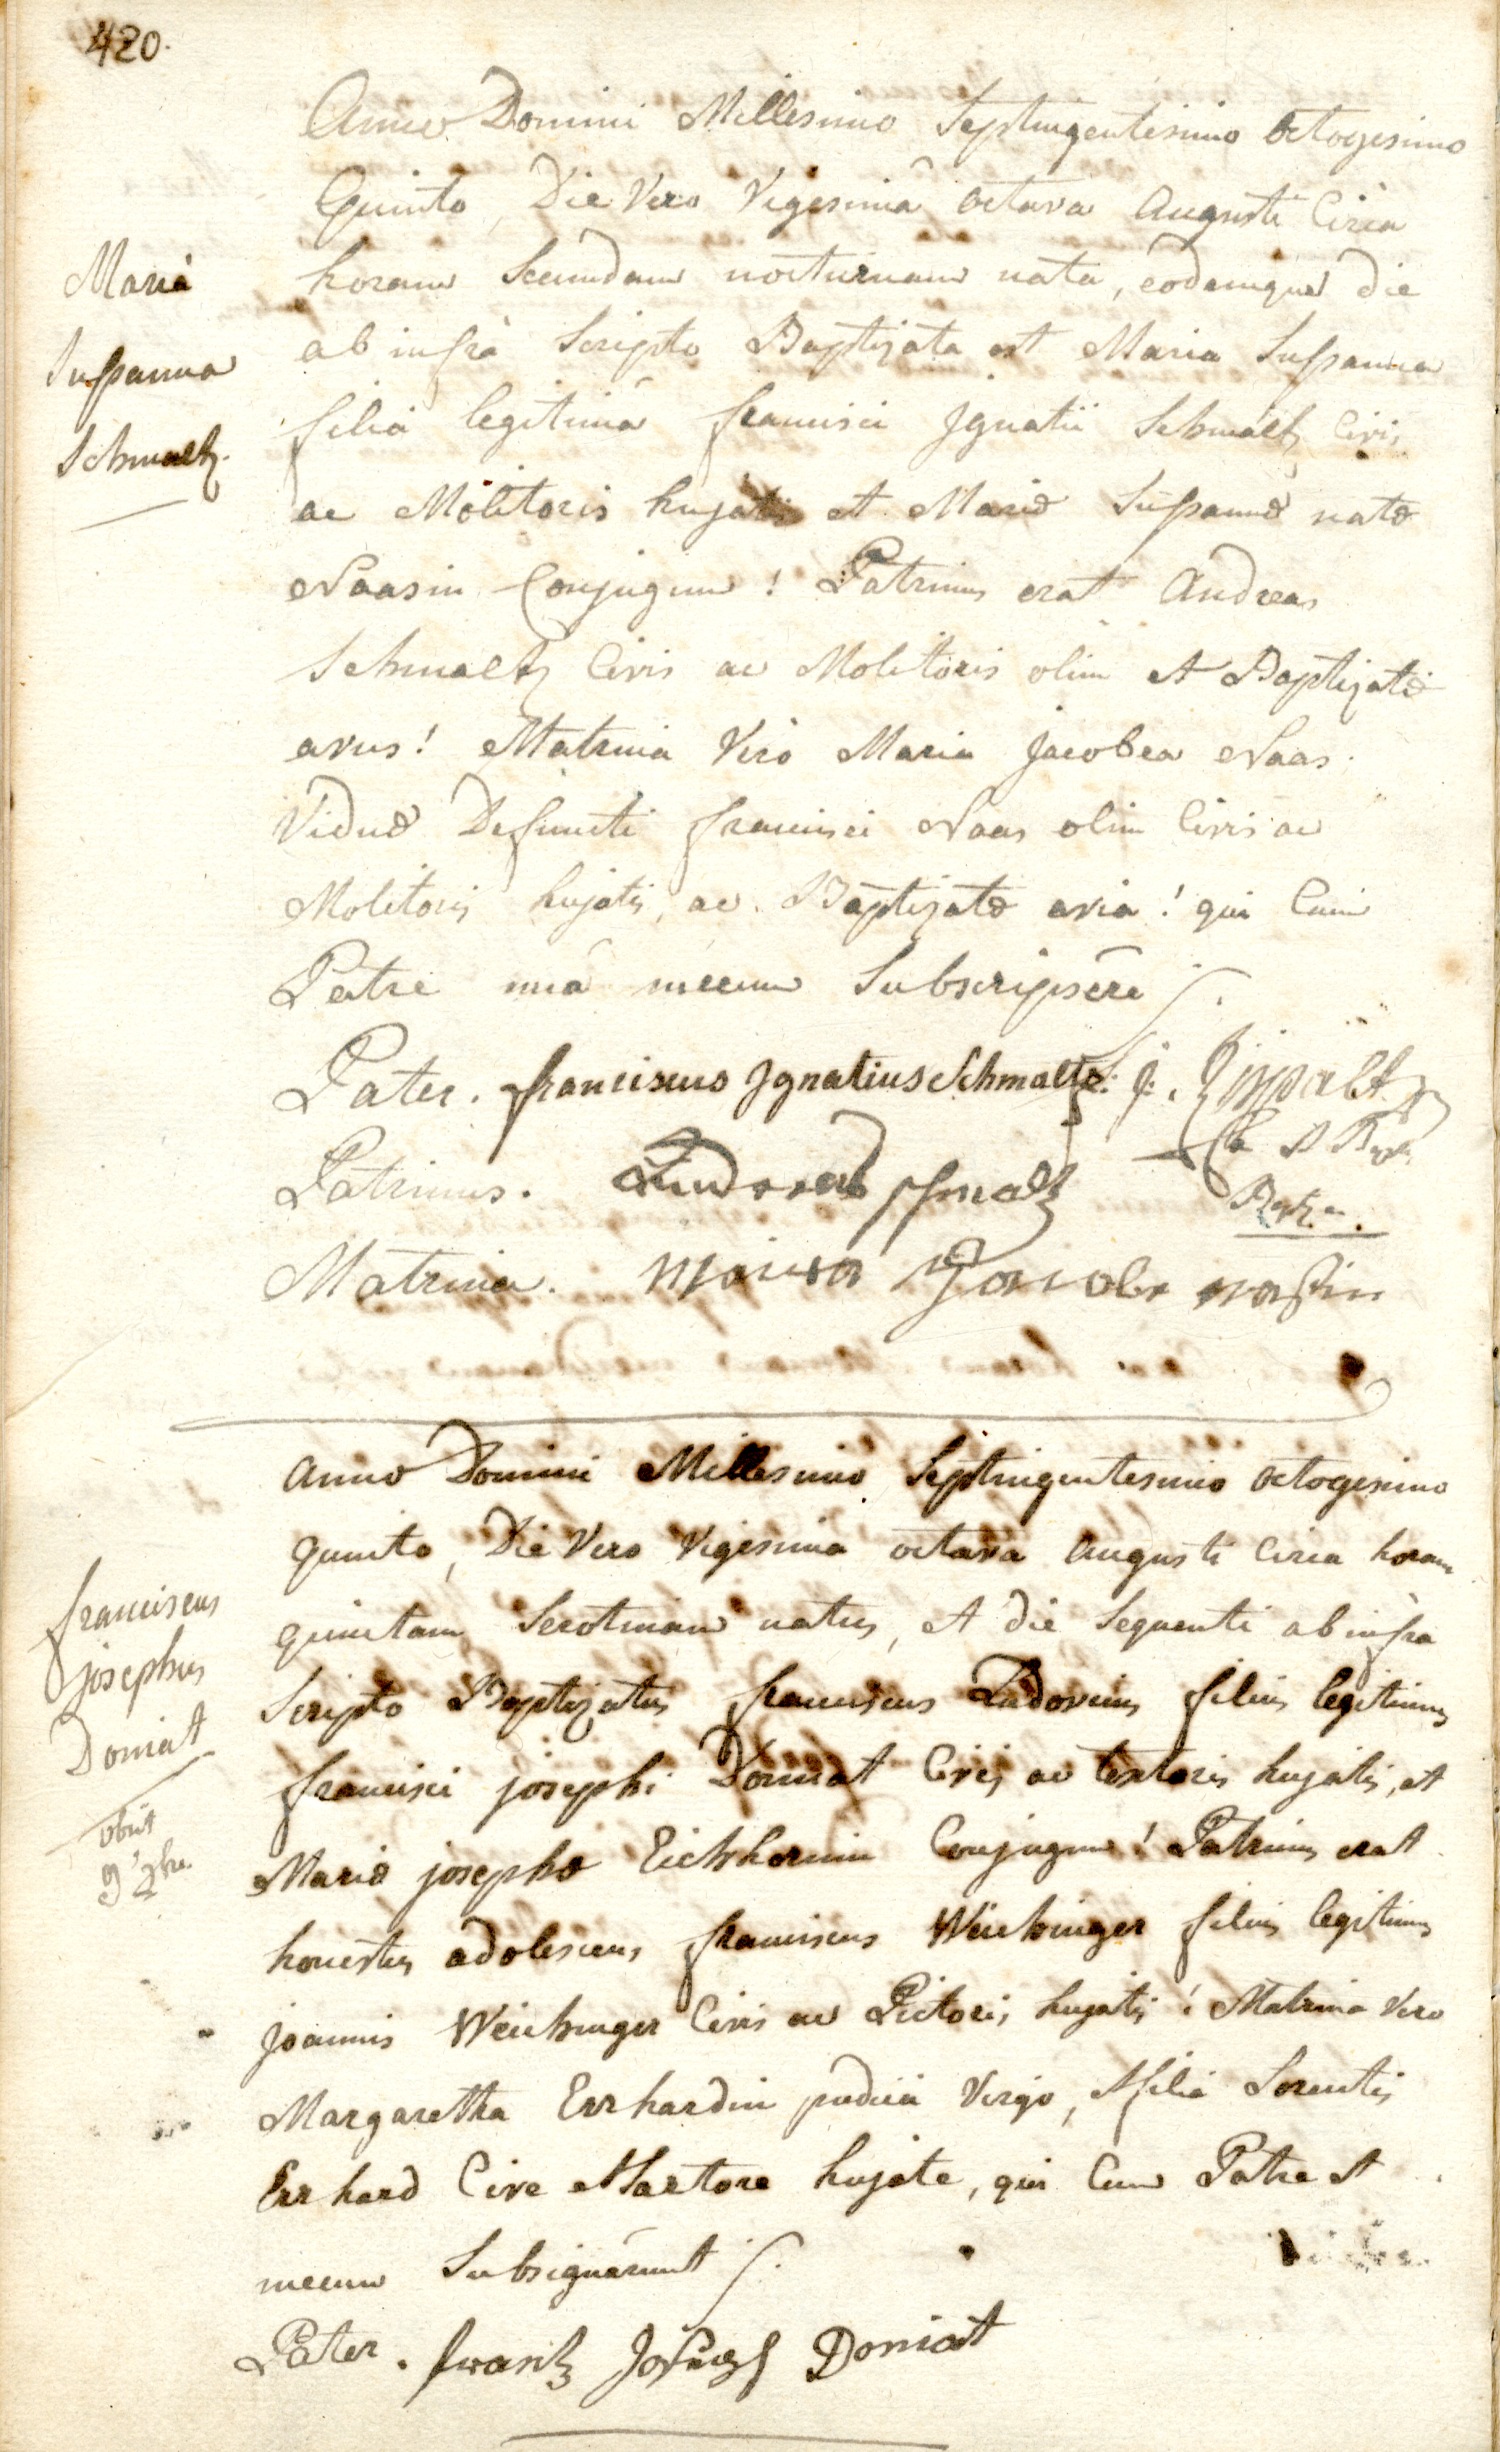 420.
Anno Domini Millesimo Septingentesimo octogesimo
Quinto, Die Vero Vigesimâ octava Augusti Circa
horam Secundam nocturnam nata, eodemque die
ab infrà Scripto Baptizata est Maria Susanna
filia legitima francisci Jgnatii Schmaltz Civis
ac Molitoris hujatis et Mariæ Susannæ natæ
Naasin Conjugum! Patrinus erat Andreas
Schmaltz Civis ac Molitoris olim et Baptizatæ
avus! Matrina Verò Maria Jacobea Naas.
Viduæ Defuncti francisci Naas olim Civis ac
Molitoris hujatis, ac Baptizatæ avia! qui Cum
Patre unà mecum Subscripsêre ./.
Maria
Susanna
Schmaltz.
Pater. franciscus Jgnatius Schmaltz.
Patrinus. Andreas schmaltz
Matrina. Maria Jacobe nasin
anno Domini Millesimo Septingentesimo octogesimo
quinto, Die Vero Vigesima octava augusti Circa horam
quintam Serotinam natus, et die Sequenti ab infra
Scripto Baptizatus franciscus Ludovicus filius legitimus
francisci josephi Doniat Civis ac textoris hujatis, et
Mariæ josephæ Eichhornin Conjugum! Patrinus erat
honestus adolescens franciscus Weichinger filius legitimus
joannis Weichinger Civis ac Pictoris hujatis! Matrina Vero
Margaretha Errhardin pudica Virgo, et filia Lorentis
Errhard Cive et Sartore hujate, qui Cum Patre et
mecum Subsignârunt ./.
franciscus
josephus
Doniat
obiit
Pater. frantz Joseph Doniat